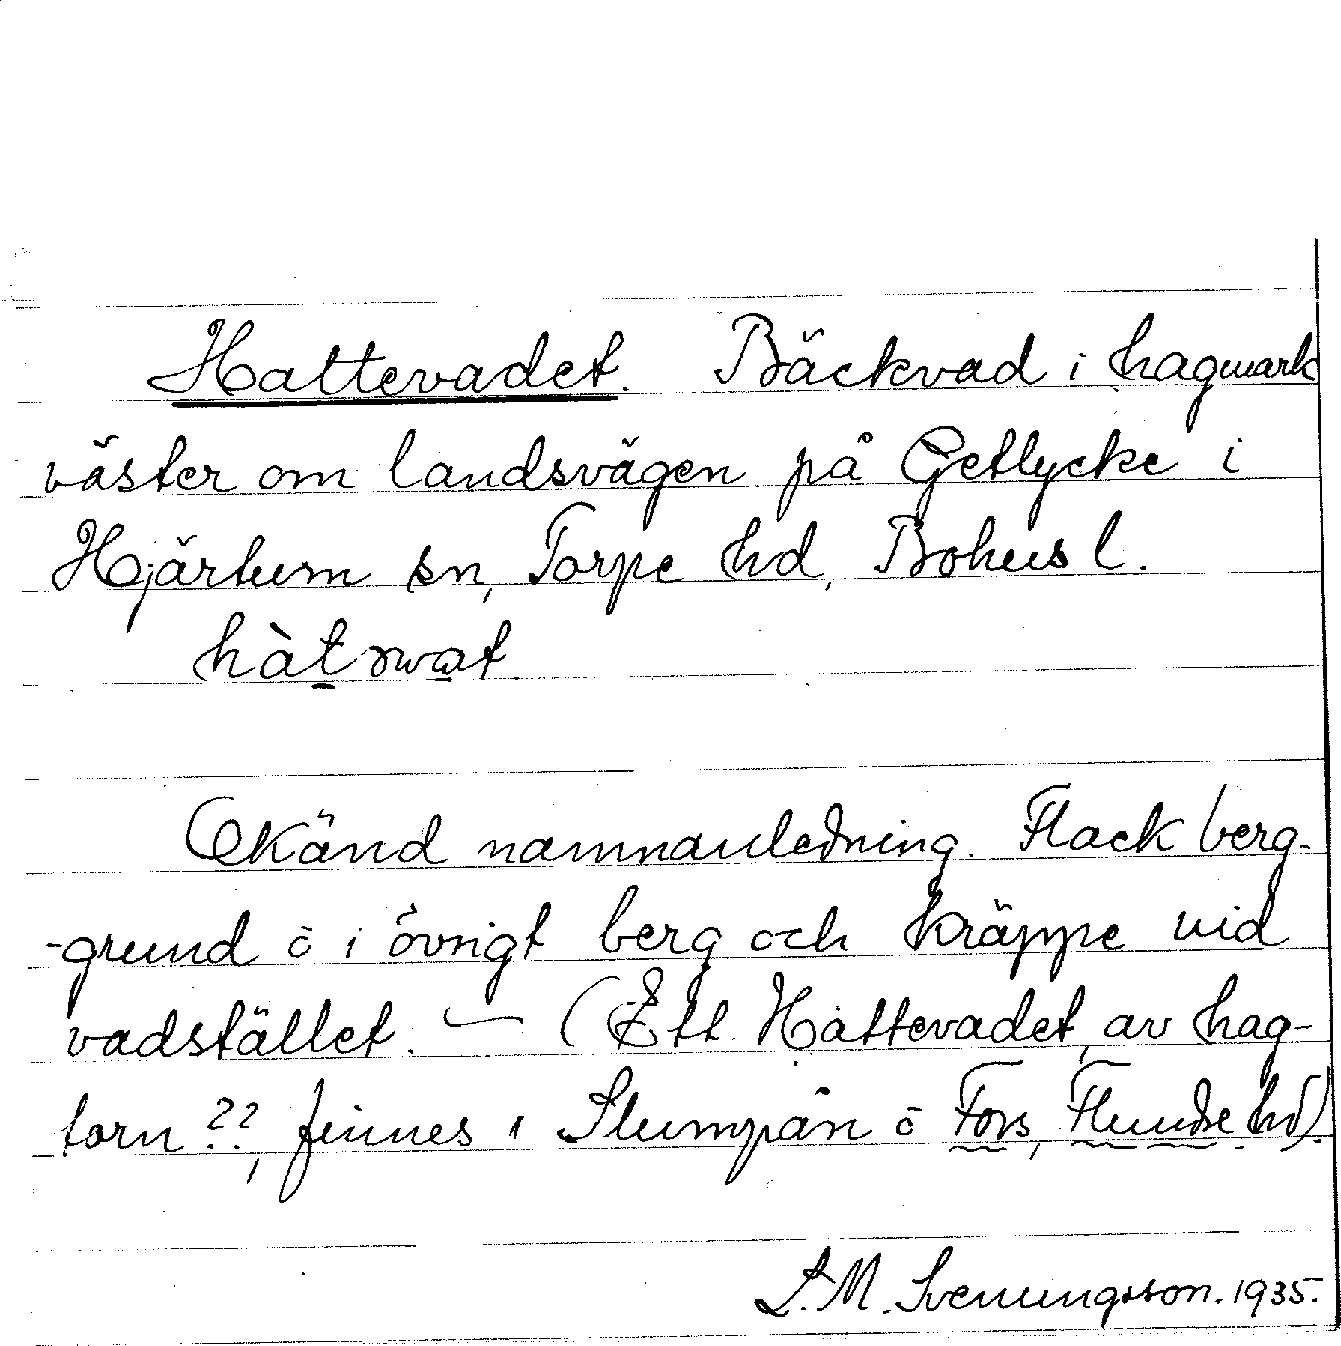 Hattevadet. Bäckvad i hagmark
väster om landsvägen på Getlycke i
Hjärtum sn, Torpe hd, Bohusl.
Okänd namnanledning. Flack berg-
-grund o i övrigt berg och kräppe vid
vadstället. — (Ett Hattevadet, av hag-
torn??, finnes i Slumpån o Fors, Flundre hd).
L. M. Svenungsson. 1935.